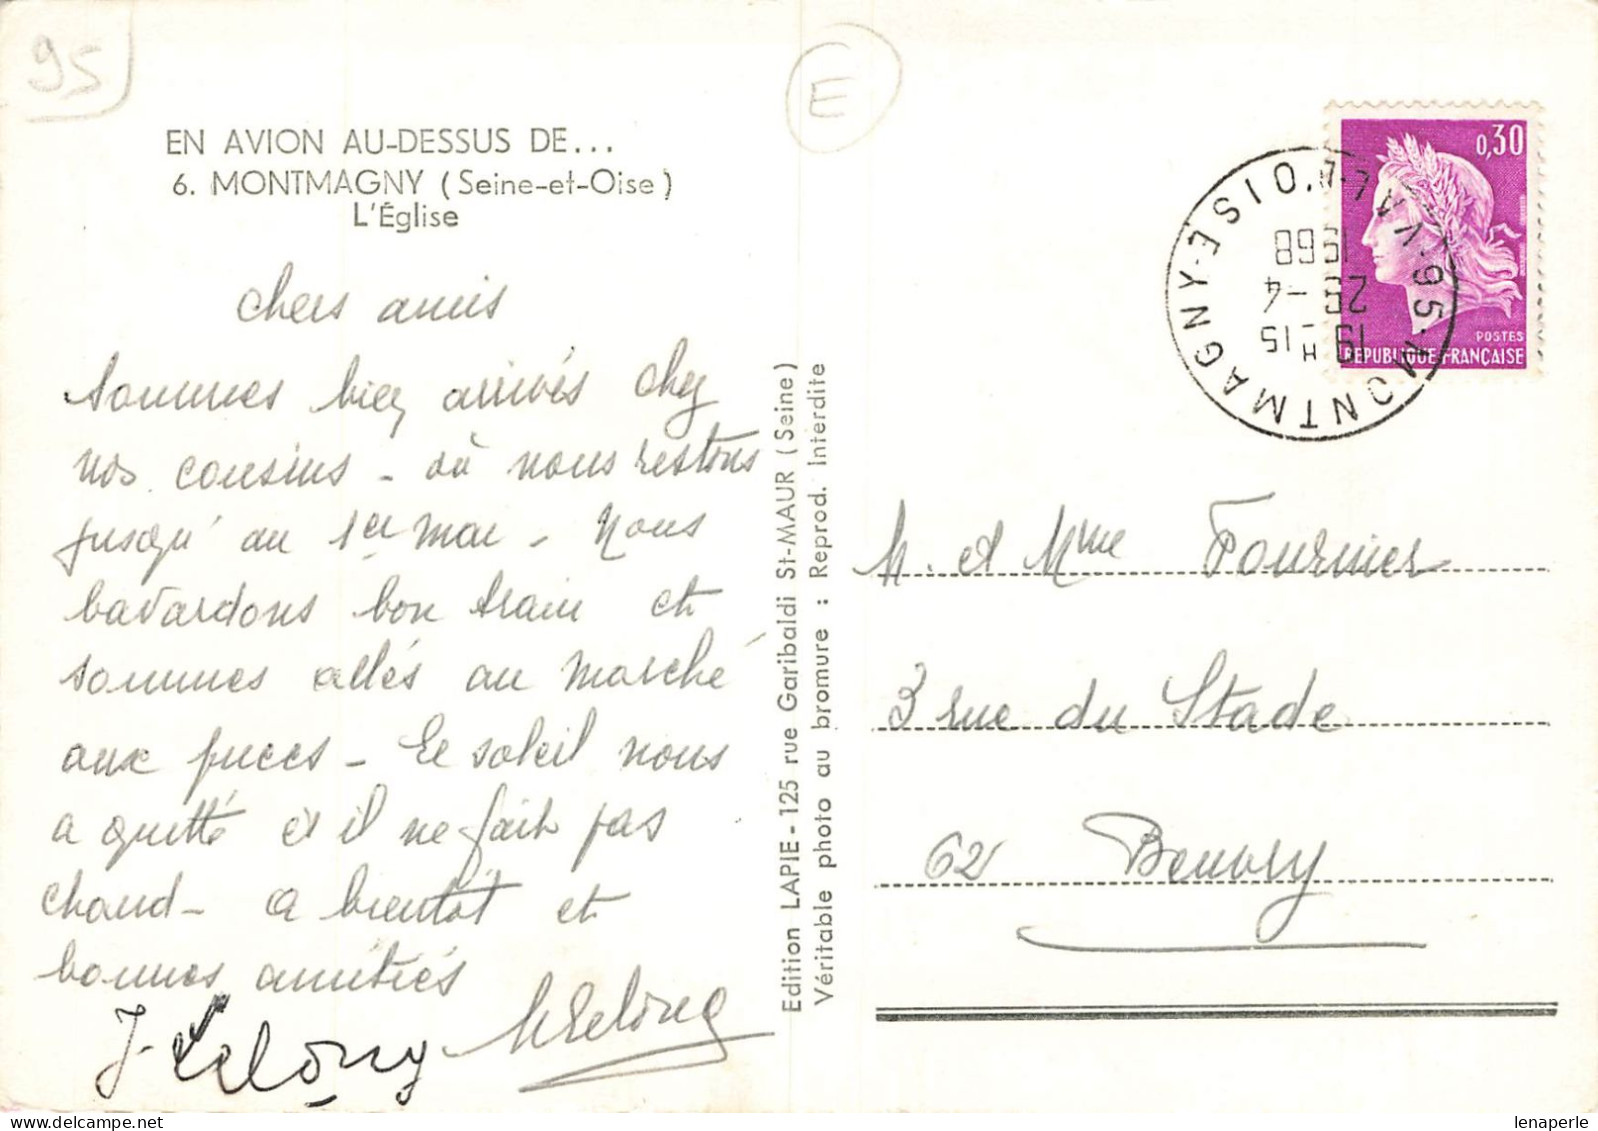 95
E
EN AVION AU-DESSUS DE...
6. MONTMAGNY (Seine-et-Oise)
L'Église
Chers amis
Sommes bien arrivés chez
nos cousins - où nous restons
jusqu'au 1er mai - Nous
bavardons bon train et
sommes allés au marché
aux puces - Le soleil nous
a quitté et il ne fait pas
chaud - a bientôt et
bonnes amitiés
J. Lelong
Lelong
Edition LAPIE - 125 rue Garibaldi St-MAUR (Seine)
Véritable photo au bromure : Reprod. Interdite
0,30
POSTES
REPUBLIQUE FRANÇAISE
95-MONTMAGNY-VAL-D'OISE
19H15
26-4
1968
M. et Mme Fournier
3 rue du Stade
62 Beuvry
lenaperle